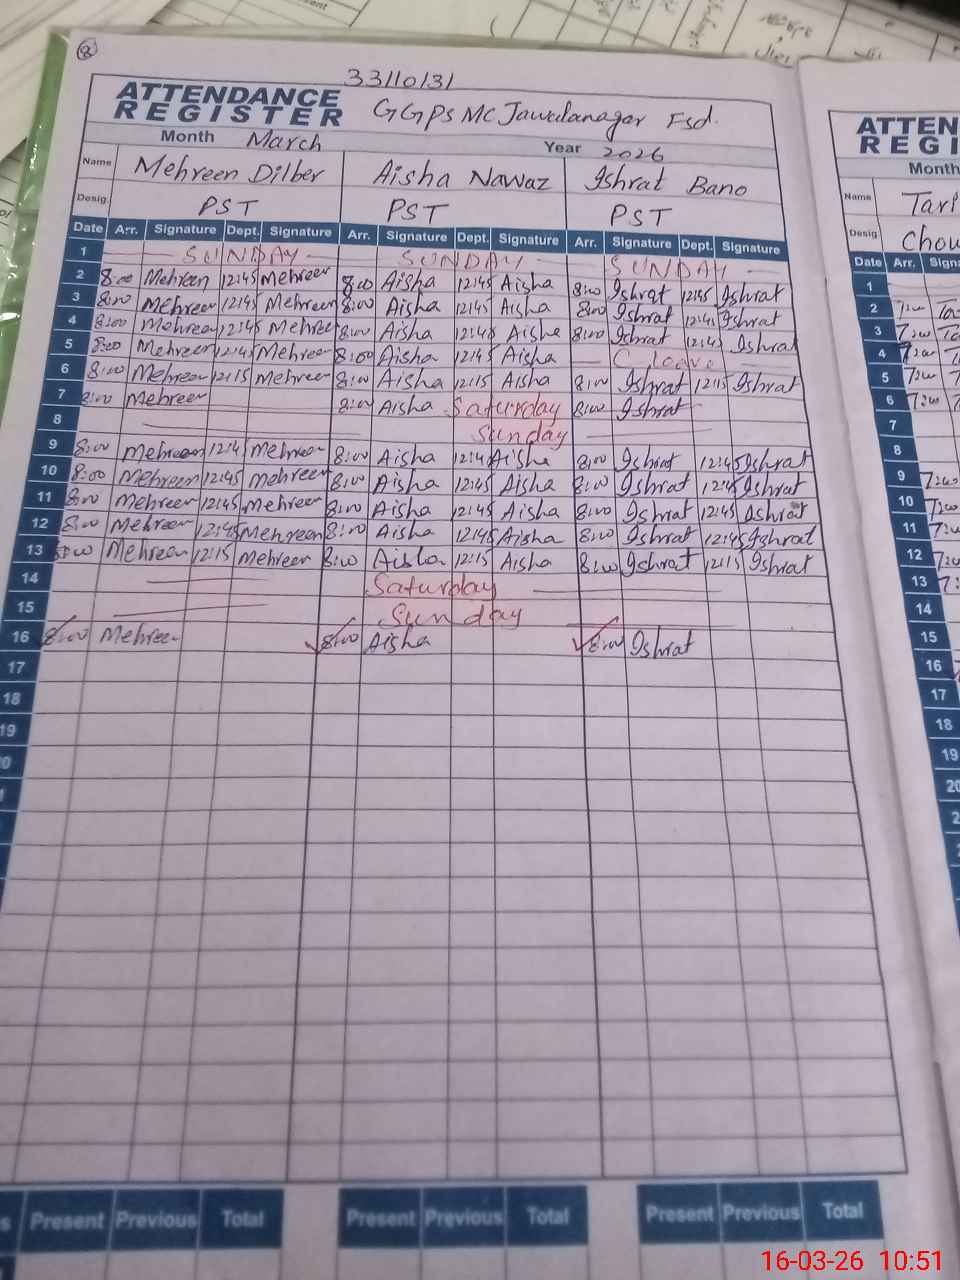 8
33110131
ATTENDANCE REGISTER GGPS MC Jawalanagar Fsd.
Month March Year 2026
Name Mehreen Dilber Aisha Nawaz Ishrat Bano
Desig. PST PST PST
Date Arr. Signature Dept. Signature Arr. Signature Dept. Signature Arr. Signature Dept. Signature
1 SUNDAY SUNDAY SUNDAY
2 8:00 Mehreen 12:45 Mehreen 8:00 Aisha 12:45 Aisha 8:00 Ishrat 12:45 Ishrat
3 8:00 Mehreen 12:45 Mehreen 8:00 Aisha 12:45 Aisha 8:00 Ishrat 12:45 Ishrat
4 8:00 Mehreen 12:45 Mehreen 8:00 Aisha 12:45 Aisha 8:00 Ishrat 12:45 Ishrat
5 8:00 Mehreen 12:45 Mehreen 8:00 Aisha 12:45 Aisha C leave
6 8:00 Mehreen 12:15 Mehreen 8:00 Aisha 12:15 Aisha 8:00 Ishrat 12:15 Ishrat
7 8:00 Mehreen 8:00 Aisha Saturday 8:00 Ishrat
8 Sunday
9 8:00 Mehreen 12:45 Mehreen 8:00 Aisha 12:45 Aisha 8:00 Ishrat 12:45 Ishrat
10 8:00 Mehreen 12:45 Mehreen 8:00 Aisha 12:45 Aisha 8:00 Ishrat 12:45 Ishrat
11 8:00 Mehreen 12:45 Mehreen 8:00 Aisha 12:45 Aisha 8:00 Ishrat 12:45 Ishrat
12 8:00 Mehreen 12:45 Mehreen 8:00 Aisha 12:45 Aisha 8:00 Ishrat 12:45 Ishrat
13 8:00 Mehreen 12:15 Mehreen 8:00 Aisha 12:15 Aisha 8:00 Ishrat 12:15 Ishrat
14 Saturday
15 Sunday
16 8:00 Mehreen 8:00 Aisha 8:00 Ishrat
17
18
19
Present Previous Total Present Previous Total Present Previous Total
ATTEN
REGI
Month
Name Tari
Desig Chow
Date Arr. Signa
1
2 7:00
3 7:00
4 7:00
5 7:00
6 7:00
7
8
9 7:00
10 7:00
11 7:00
12 7:00
13 7:
14
15
16
17
18
19
20
16-03-26 10:51